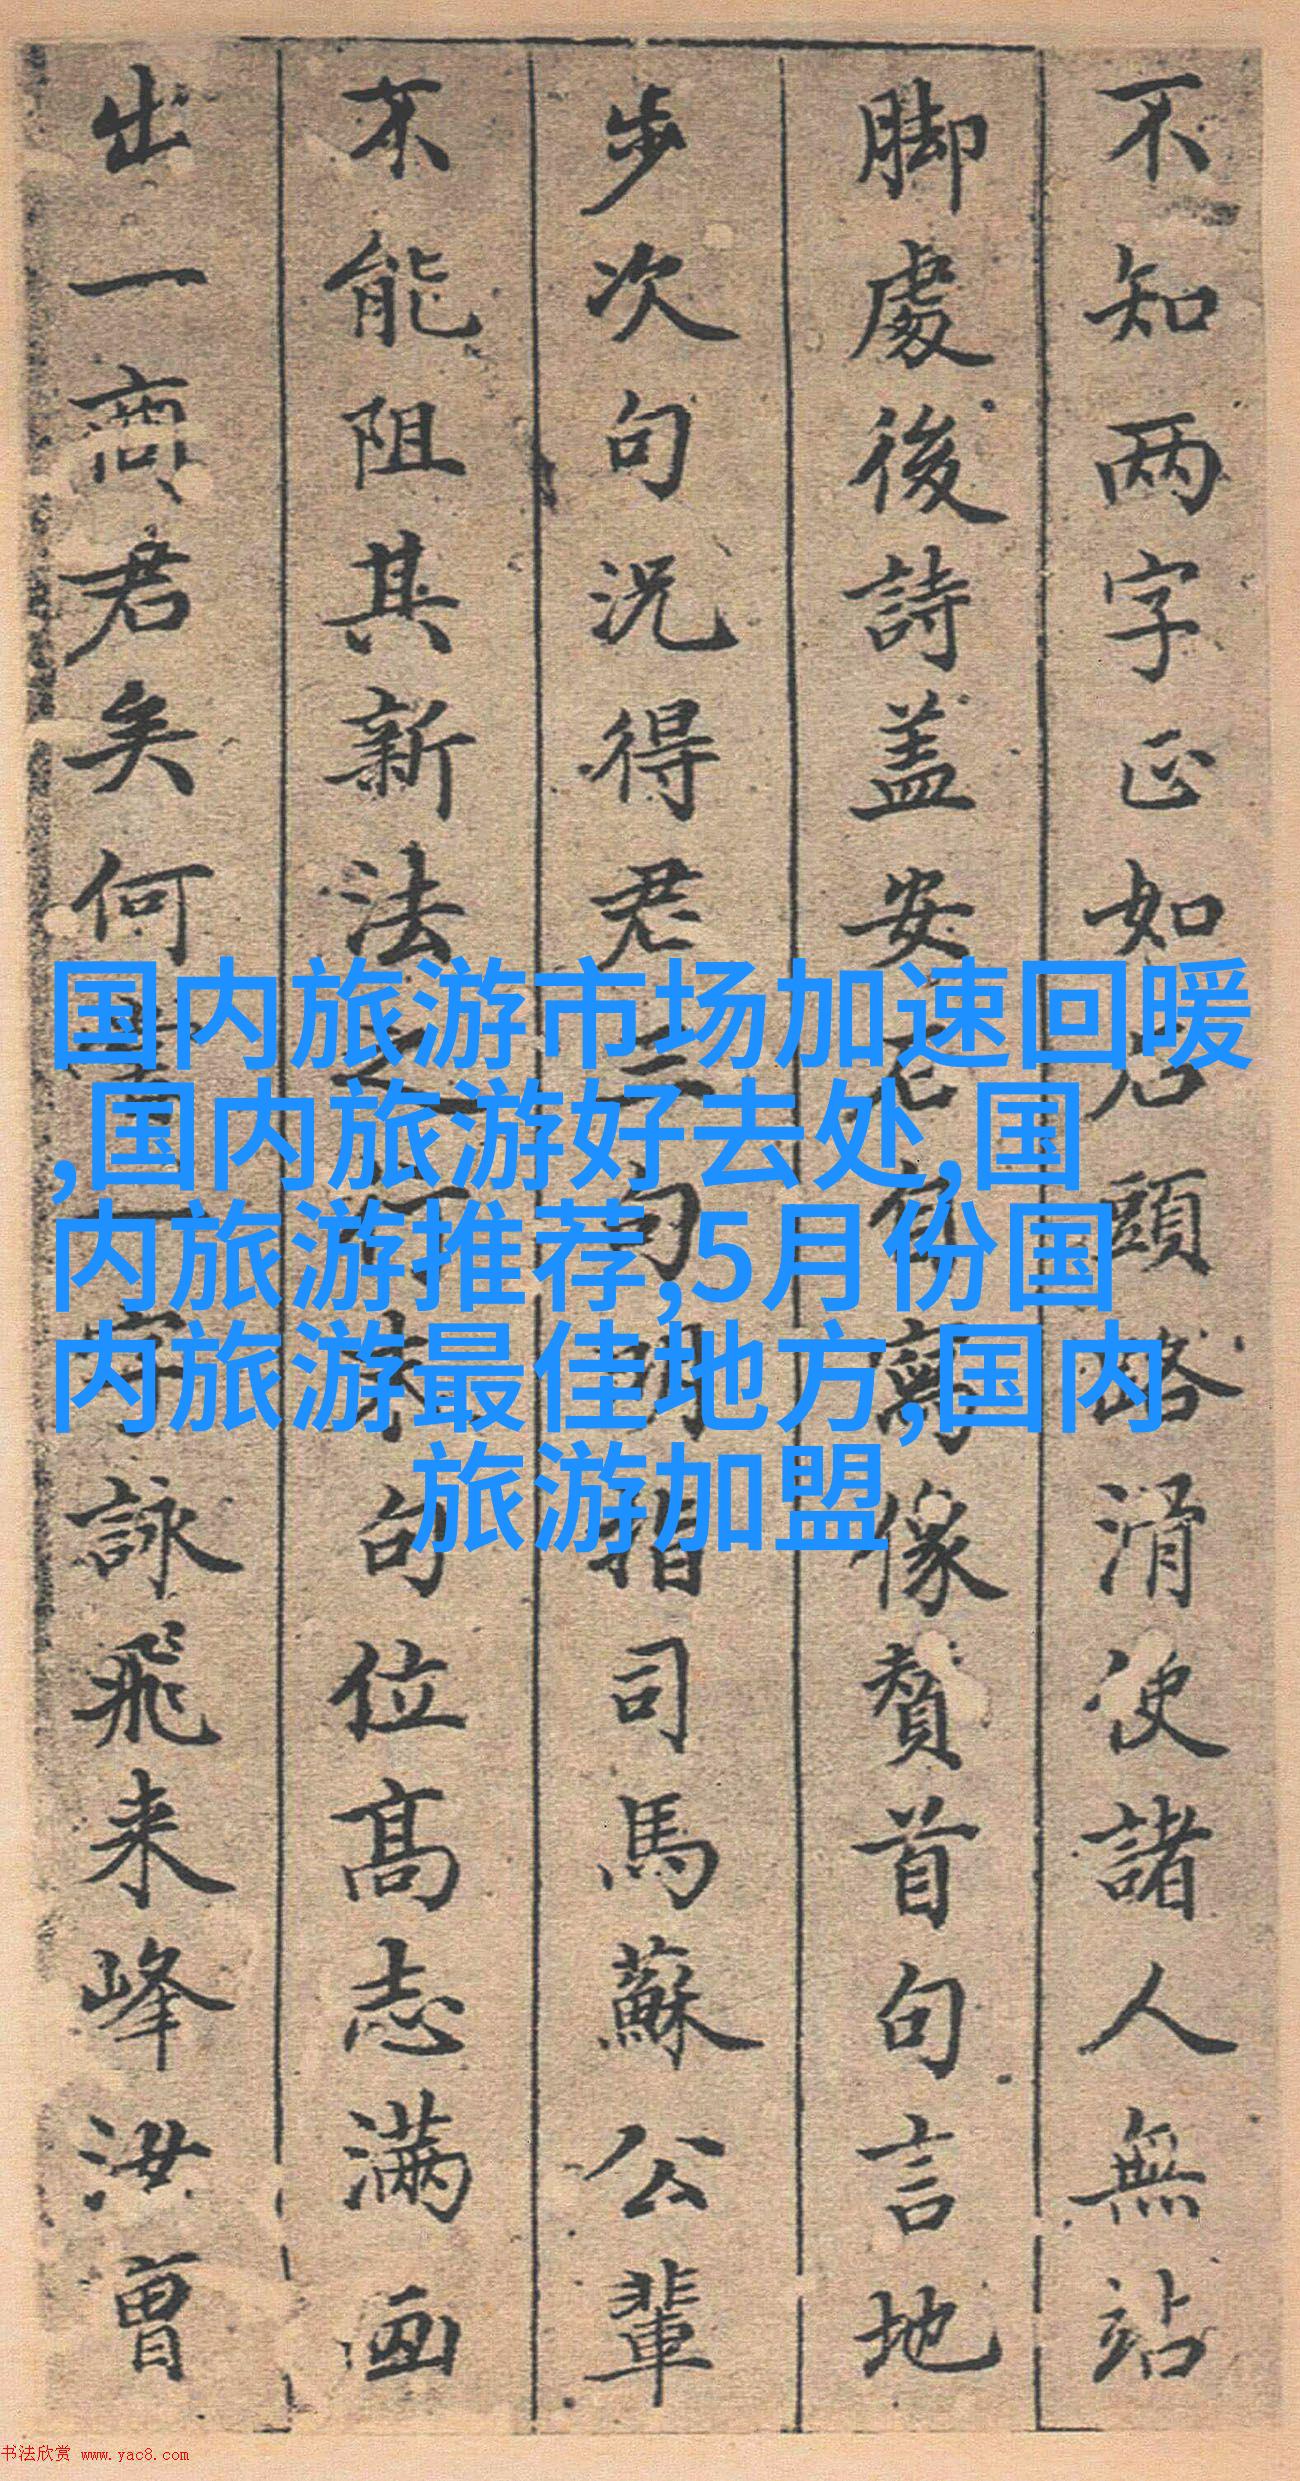 不知两字正如石頭路滑使諸人無站
脚處後詩盖安石自寫像贊首句言地
步次句況得君三句明指司馬蘇公輩
不能阻其新法之行末句位高志满画
出一商君矣何一字詠飛来峰汝曾
国内旅游市场加速回暖
,国内旅游好去处,国
内旅游推荐,5月份国
内旅游最佳地方,国内
旅游加盟
书法欣赏 www.yac8.com